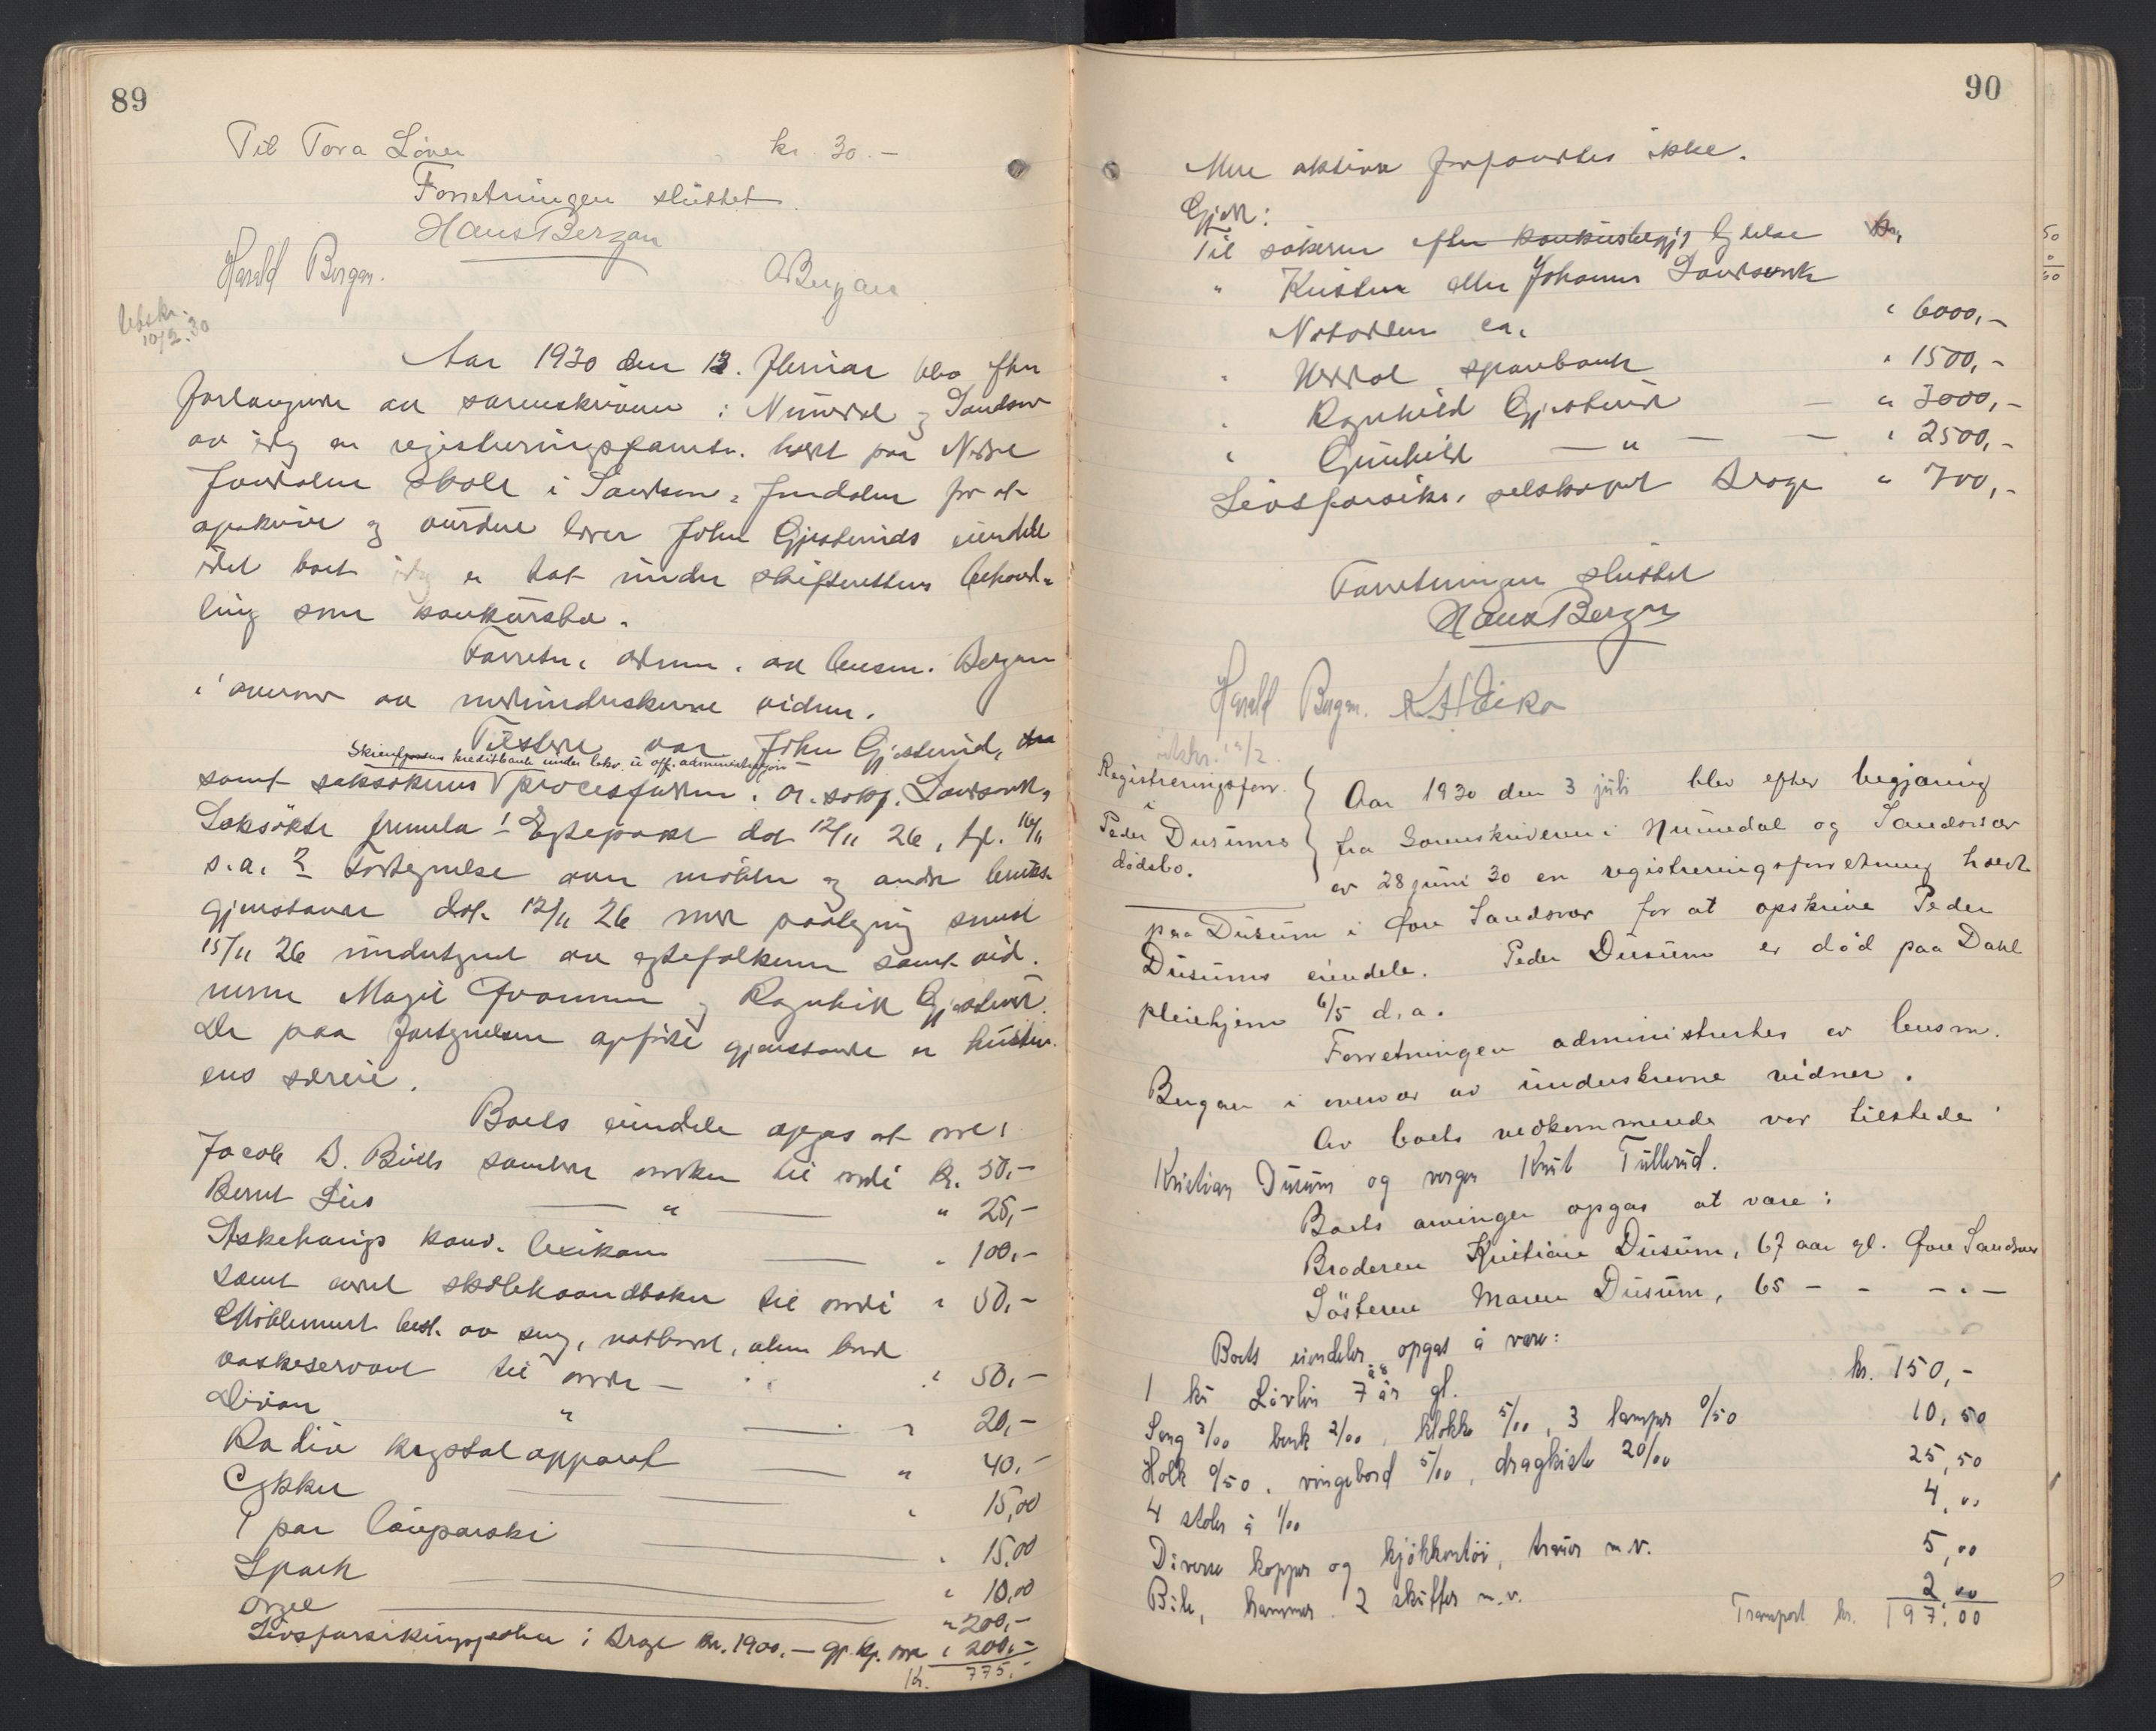 89
Til Tora Löver kr. 30.-
Forretningen sluttet.
Hans Bergan
Harald Bergan. OBergan
Utskr. 10/2.30
Aar 1930 den 12. februar blev efter
forlangende av sorenskriveren i Numedal og Sandsvær
av idag en registreringsforretn. holdt paa Nedre
Jondalen skole i Sandsv. Jondalen for at
opskrive og vurdere lærer John Gjestruds eiendele
idet boet idag er tat under skifterettens behand-
ling som konkursbo.
Forretn. adm. av lensm. Bergan
i overvær av medunderskrevne vidner.
Tilstede var John Gjestrud,
Skiensfjordens kreditbank under likv. u. off. administrasjon
samt saksökerens procesfuldm. o.r.sakf. Landsverk,
Saksökte fremla 1 Egtepakt dat 12/11 26, tgl. 16/11
s.a. 2 Fortegnelse over möbler og andre bruks-
gjenstander dat. 12/11 26 med paategning samt
15/11 26 undertegnet av egtefolkene samt vid-
nerne Magni Qvammen og Ragnhild Gjestrud.
De paa fortegnelsen opförte gjenstande er hustru-
ens særeie.
Boets eiendele opgas at være:
Jacob B. Bulls samlede verker til verdi kr. 50,-
Bernt Lies — " — " 25,-
Askehougs konv. leksikon — " 100,-
samt annet skolehaandböker til verdi " 50,-
Möblement best. av seng, natbord, alm. bord
vaskeservant til verdi - " 50,-
Divan " — " 20,-
Radio krystalapparat — " 40,-
Cykkel — " 15,00
1 par lauparski — " 15,00
Spark — " 10,00
Orgel — " 200,-
Livsforsikringspolise i Drage kr. 1900,- gj. kj. ver. " 200,-
Kr. 775,-
90
Mere aktiva forefandtes ikke.
Gjeld:
Til sökeren efter konkursbegj. lydelse kr.
" Kristen eller Johannes Landsverk
Notodden ca. " 6000,-
" Uvdal sparebank " 1500,-
" Ragnhild Gjestrud — " 3000,-
" Gunhild — " — — " 2500,-
Livsforsikr. selskapet Drage " 700,-
Forretningen sluttet
Hans Bergan
Harald Bergan.
utskr. 12/2.
Registreringsforr.
i
Peder Dusums
dödsbo.
Aar 1930 den 3 juli blev efter begjæring
fra Sorenskriveren i Numedal og Sandsvær
av 28 juni 30 en registreringsforretning holdt
paa Dusum i Övre Sandsvær for at opskrive Peder
Dusums eiendele. Peder Dusum er död paa Dahl
pleiehjem 6/5 d.a.
Forretningen administrertes av lensm.
Bergan i overvær av underskrevne vidner.
Av boets vedkommende var tilstede
Kristian Dusum og vergen Knut Tullerud.
Boets arvinger opgas at være:
Broderen Kristian Dusum, 67 aar gl. Övre Sandsvær
Søsteren Maren Dusum, 65 - - - " -
Boets eiendeler opgas å være:
1 ku Livlin 7 år gl. kr. 150,-
Seng 3/00 benk 2/00, klokke 5/00, 3 lamper 0/50 10,50
Holk 0/50, vingebord 5/00, dragkiste 20/00 25,50
4 stoler à 1/00 4,00
Diverse kopper og kjökkentöi, trauer m.v. 5,00
Bile, hammer, 2 skuffer m.v. 2,00
Transport kr. 197,00